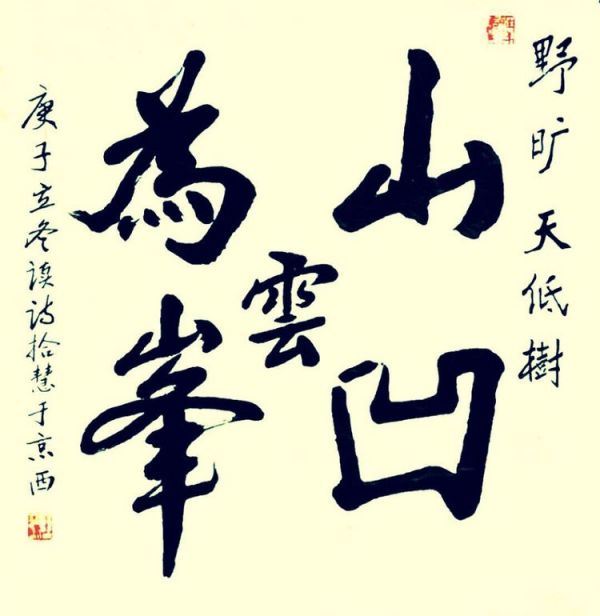 野旷天低樹
山凹
雲
為峯
庚子立冬读诗拾慧于京西